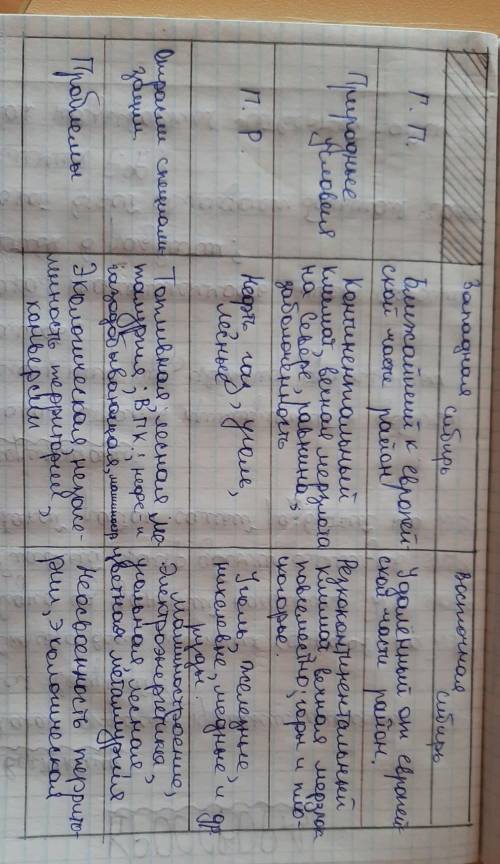 Западная Сибирь
Восточная Сибирь
Г. П.
Ближайший к европей-
ской части район
Удаленный от европей-
ской части район.
Природные
условия
Континентальный
климат, вечная мерзлота
на Севере, равнина,
заболоченность
Резкоконтинентальный
климат, вечная мерзлота
повсеместно; горы и плос-
когорье.
П. Р.
Нефть, газ, уголь,
лесные
Уголь, железные,
никелевые, медные и др
руды.
Отрасли специали-
зации
Топливная; лесная; ме-
таллургия; ВПК; нефте- и
газодобывающая, машиност
Машиностроение,
Электроэнергетика,
угольная, лесная,
цветная металлургия
Проблемы
Экологическая,
территории,
Неосвоенность террито-
рии, экологическая